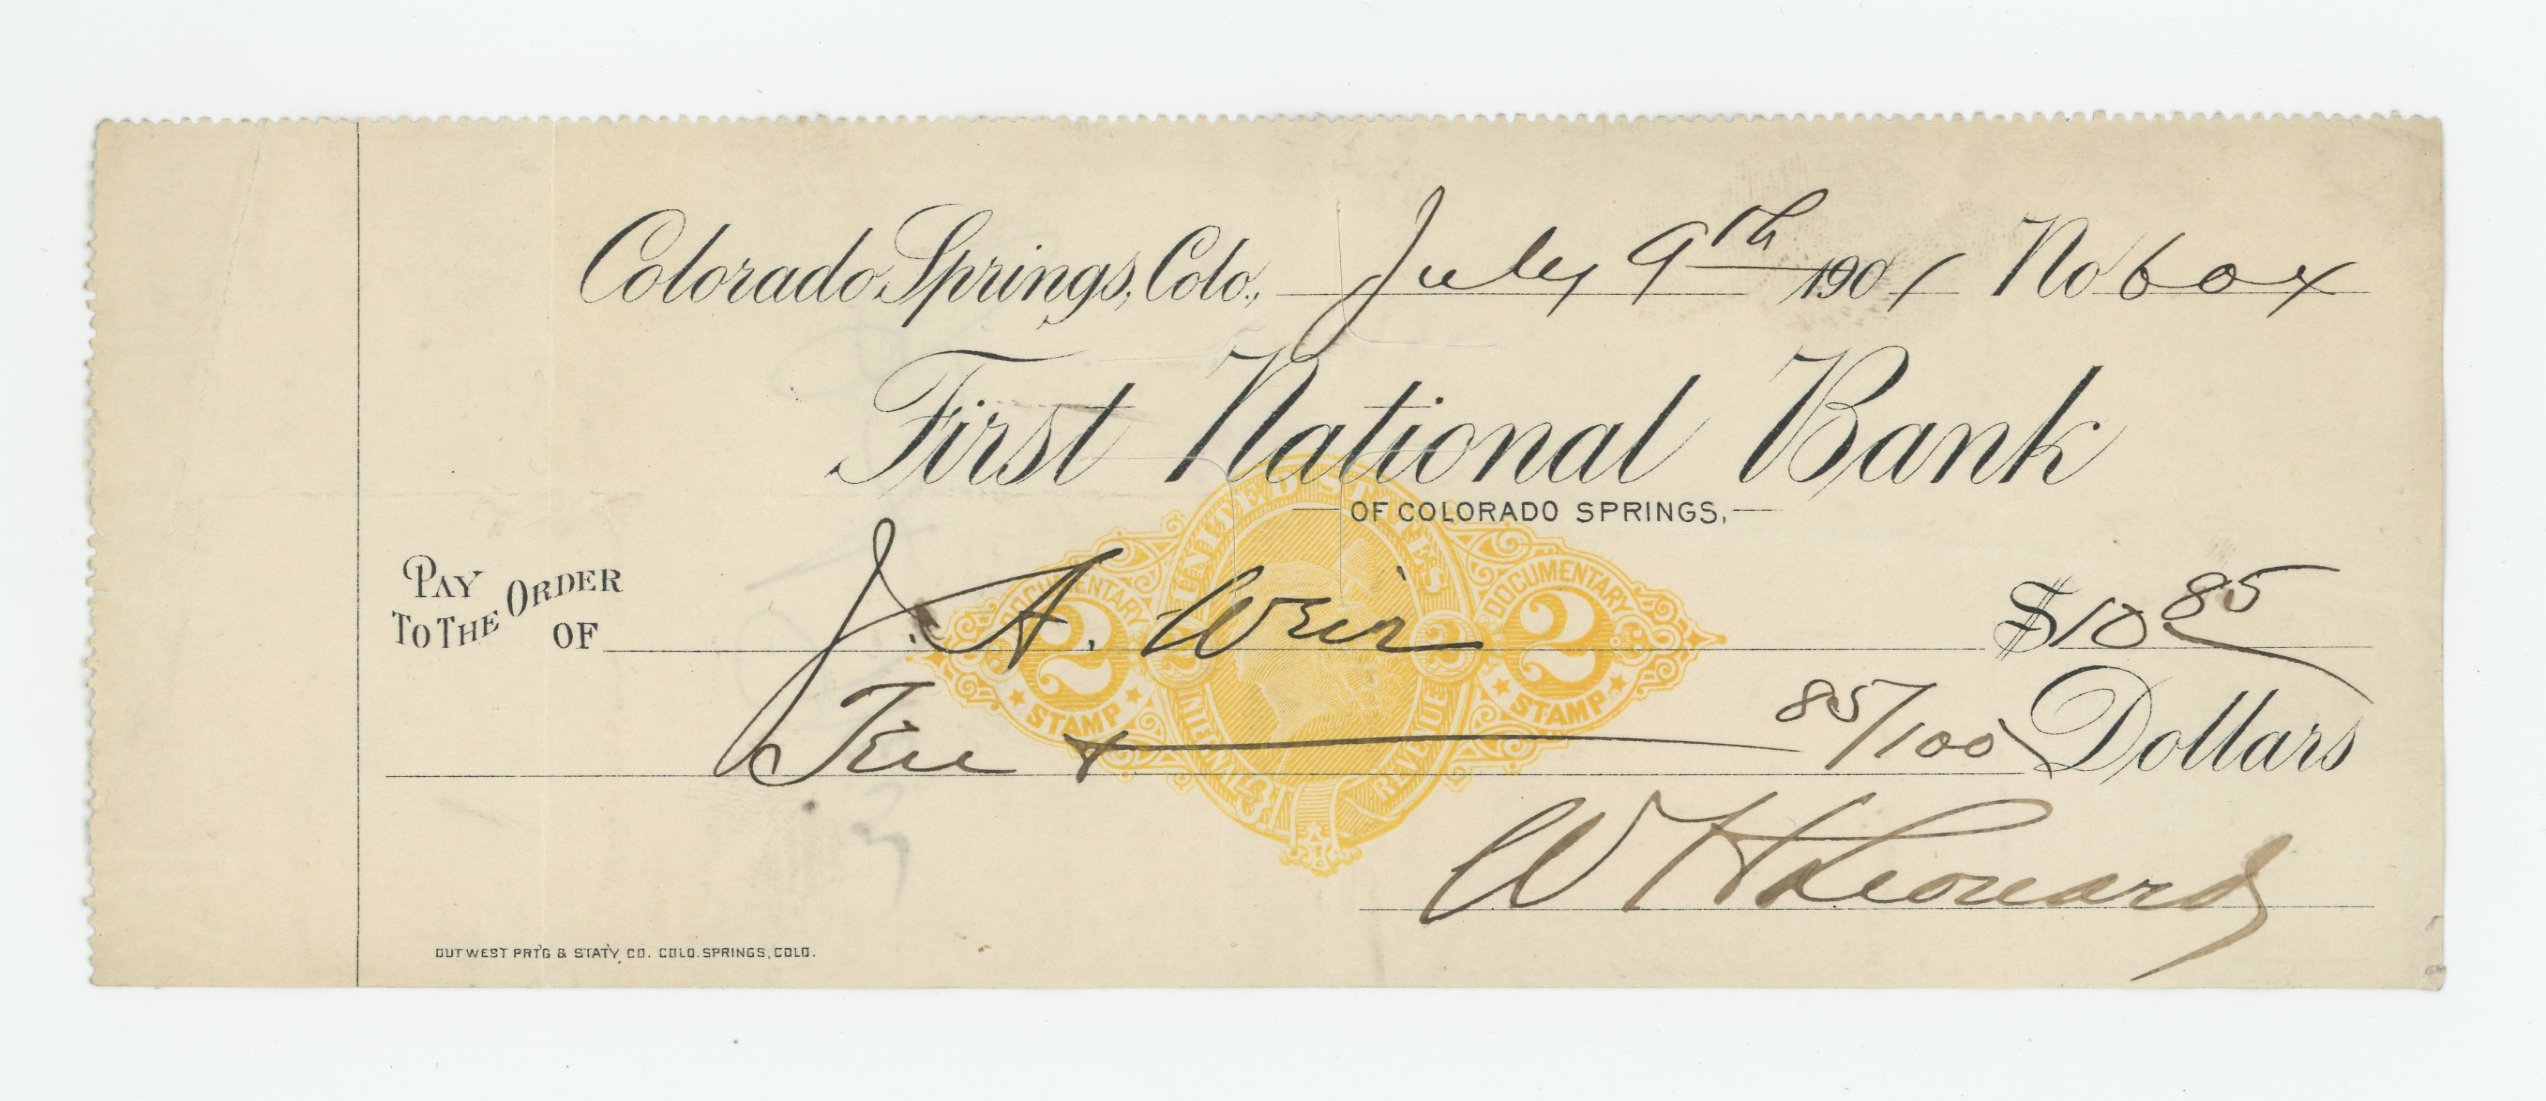 Colorado Springs, Colo., July 9th 1901 No 604
First National Bank
OF COLORADO SPRINGS,
PAY TO THE ORDER OF J. A. Weir $10 85
Ten & 85/100 Dollars
W H Leonard
UNITED STATES INTERNAL REVENUE
DOCUMENTARY 2 STAMP
DOCUMENTARY 2 STAMP
2 2
OUT WEST PRT'G & STAT'Y CO. COLO. SPRINGS, COLO.